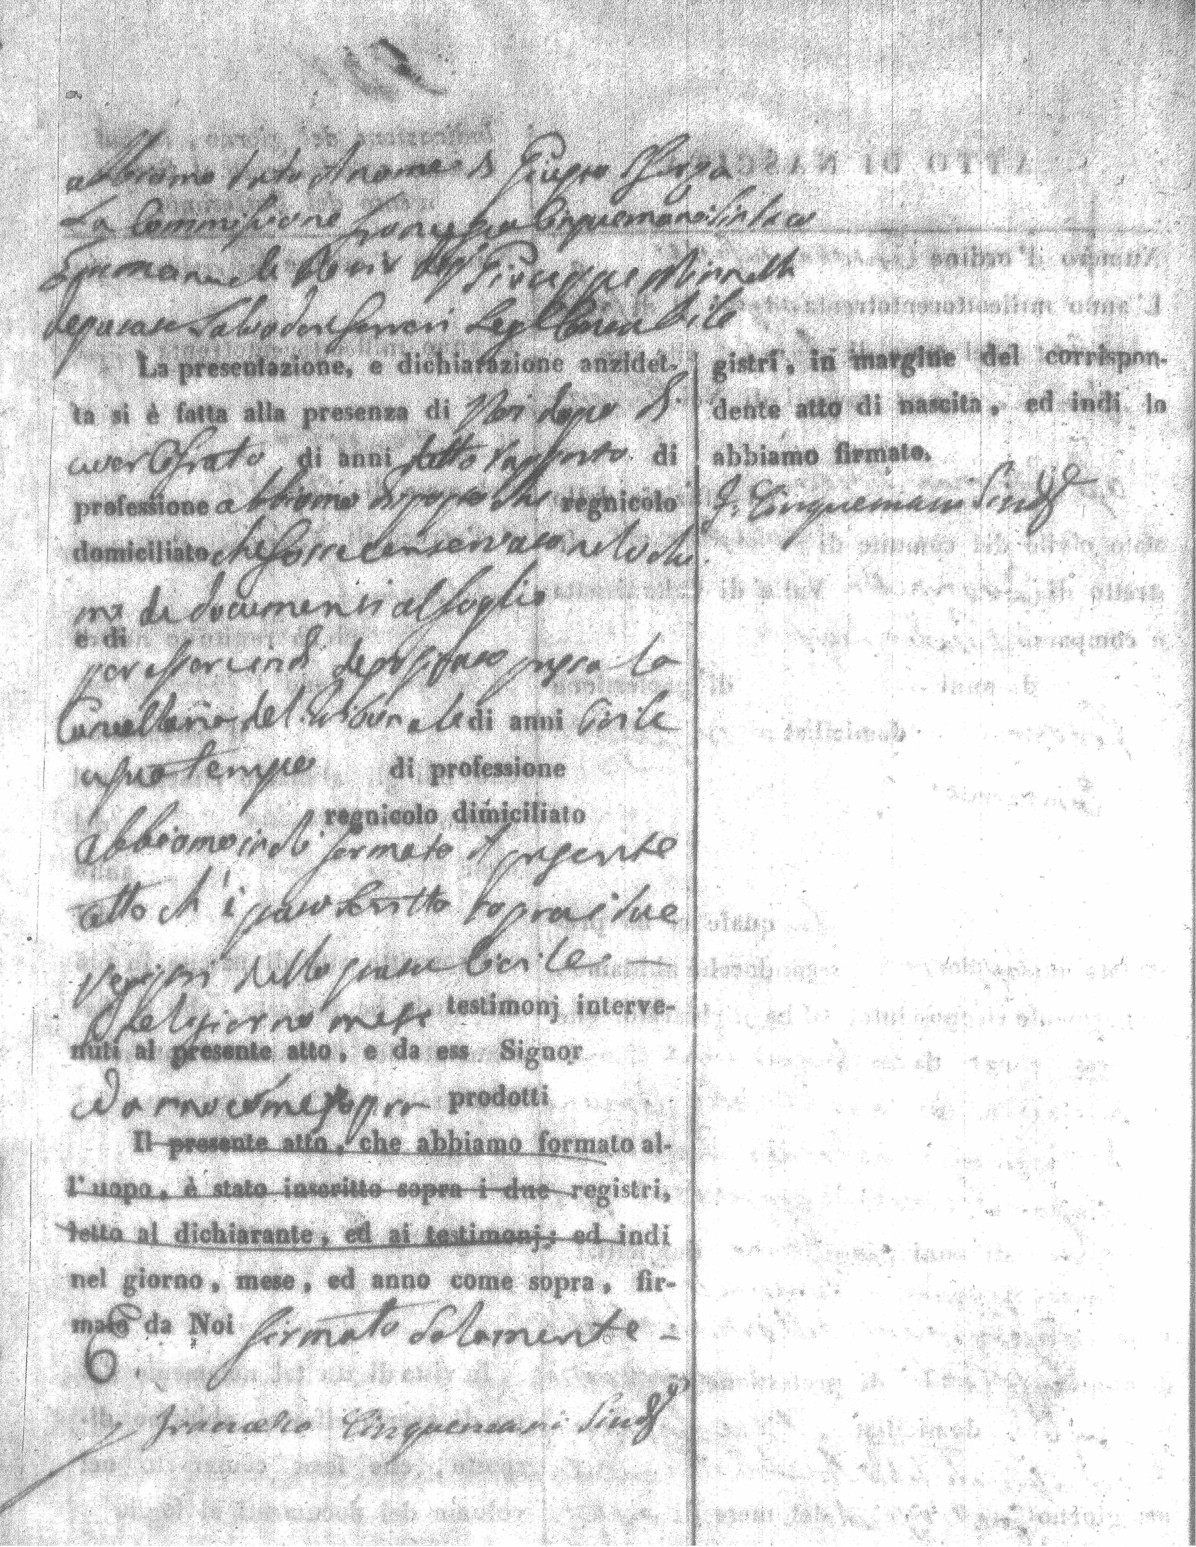 abbiamo dato il nome di Giuseppe Sforza
La Commissione Francesco Cinquemani Sindaco
Emmanuele Giuseppe Minnella
Salvadore Ferreri
La presentazione, e dichiarazione anzidet-
ta si è fatta alla presenza di Noi dopo di
aver Cifrato di anni detto rapporto di
professione abbiamo disposto che regnicolo
domiciliato che fosse conservato nel volu
me de documenti al foglio
e di
per essere indi depositato presso la
Cancellaria del Tribunale di anni Civile
a suo tempo di professione
regnicolo dimiciliato
abbiamo indi formato il presente
atto ch'è stato scritto sopra i due
registri dello stato Civile
nel giorno mese testimonj interve-
nuti al presente atto, e da ess Signor
ed anno come sopra prodotti
Il presente atto, che abbiamo formato al-
l'uopo, è stato inscritto sopra i due registri,
letto al dichiarante, ed ai testimonj; ed indi
nel giorno, mese, ed anno come sopra, fir-
mato da Noi firmato solamente
Francesco Cinquemani Sind
gistri, in margine del corrispon-
dente atto di nascita, ed indi lo
abbiamo firmato.
F. Cinquemani Sind